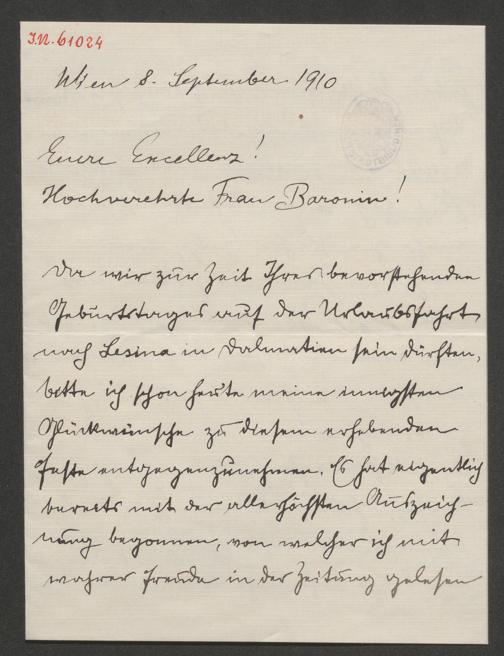 J.N. 61024
Wien 8. September 1910
Euere Excellenz!
Hochverehrte Frau Baronin!
Da wir zur Zeit Ihres bevorstehenden
Geburtstages auf der Urlaubsfahrt
nach Lesina in Dalmatien sein dürften,
bitte ich schon heute meine innigsten
Glückwünsche zu diesem erhebenden
Feste entgegenzunehmen. Es hat eigentlich
bereits mit der allerhöchsten Auszeich-
nung begonnen, von welcher ich mit
wahrer Freude in der Zeitung gelesen